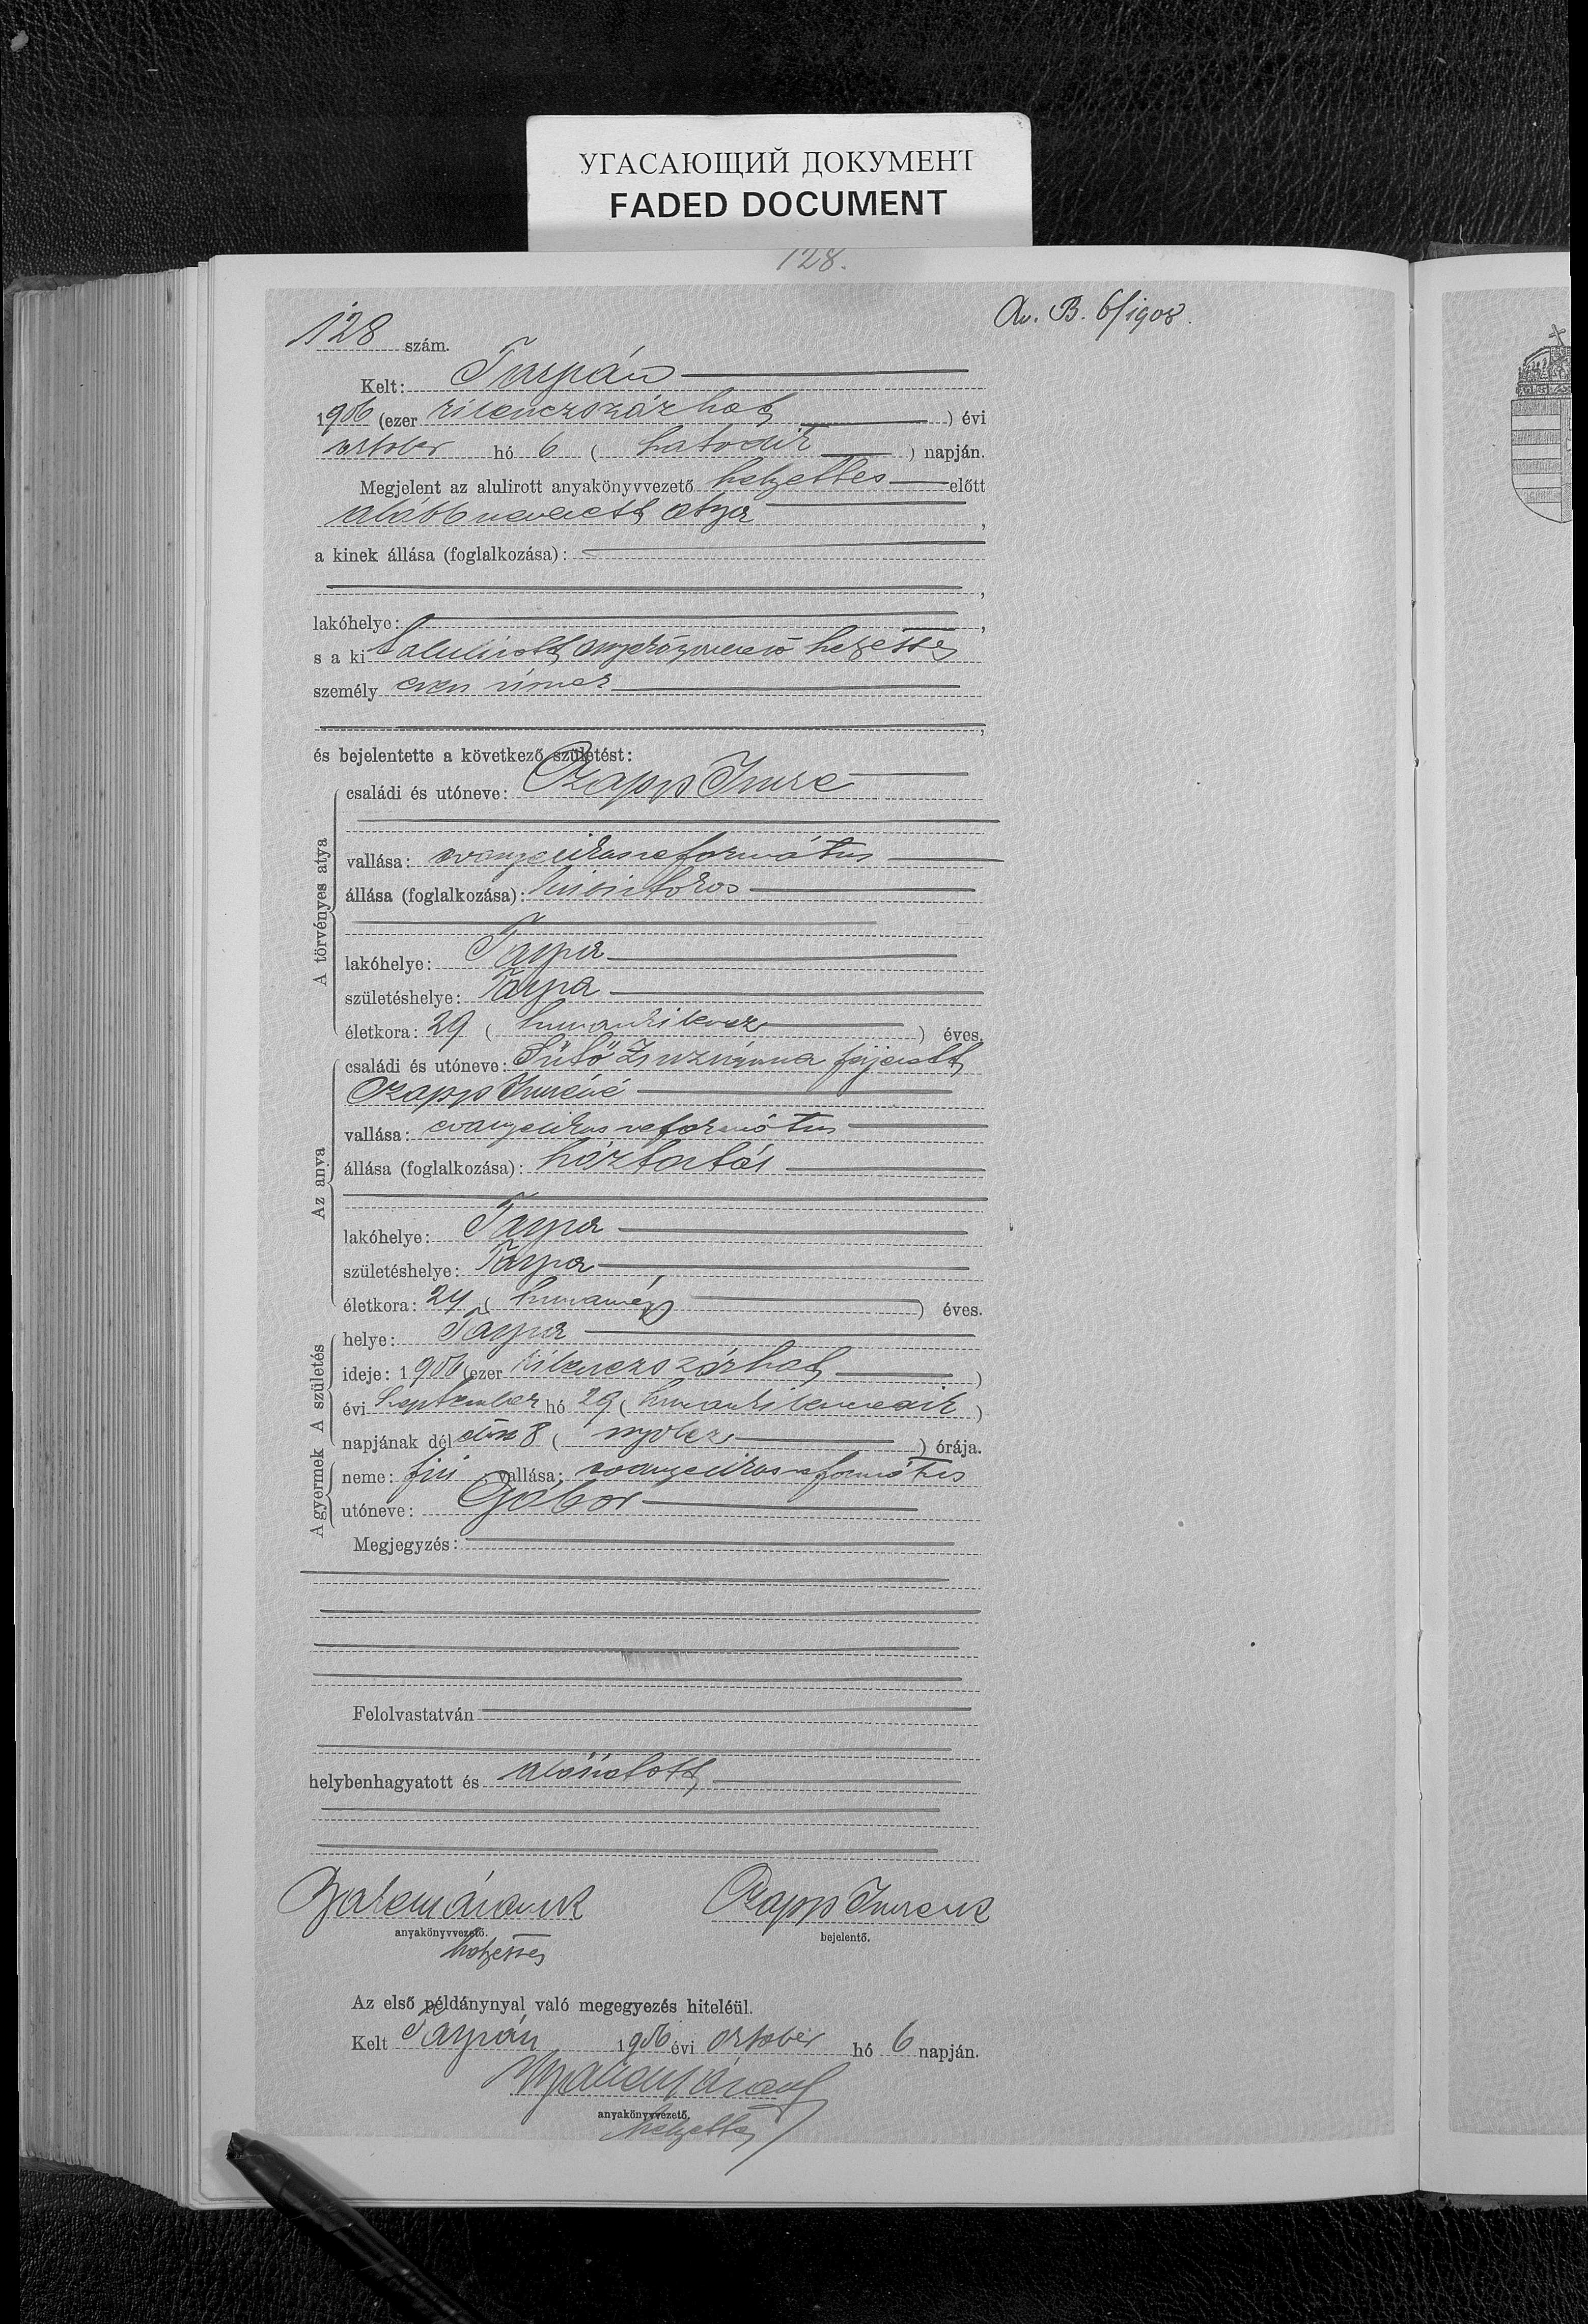 УГАСАЮЩИЙ ДОКУМЕНТ
FADED DOCUMENT
128.
Av. B. 6/1908.
128 szám.
Kelt: Tarpán
1906 (ezer kilenczszázhat) évi
október hó 6 (hatodik) napján.
Megjelent az alulirott anyakönyvvezető helyettes előtt
alább nevezett atya,
a kinek állása (foglalkozása):
,
lakóhelye: ,
s a kit alulirott anyakönyvvezető helyettes
személyesen ismer
,
és bejelentette a következő születést:
A törvényes atya
családi és utóneve: Czapp Imre
vallása: evangelikus református
állása (foglalkozása): kisbirtokos
lakóhelye: Tarpa
születéshelye: Tarpa
életkora: 29 (huszonkilencz) éves.
Az anya
családi és utóneve: Sütő Zsuzsánna férjezett
Czapp Imréné
vallása: evangelikus református
állása (foglalkozása): háztartás
lakóhelye: Tarpa
születéshelye: Tarpa
életkora: 24 (huszonnégy) éves.
A születés
helye: Tarpa
ideje: 1906 (ezer kilenczszázhat)
évi September hó 29 (huszonkilenczedik)
napjának délelőtt 8 (nyolcz) órája.
A gyermek
neme: fiú vallása: evangelikus református
utóneve: Gábor
Megjegyzés:
Felolvastatván
helybenhagyatott és aláíratott
Czapp Imre
anyakönyvvezető.
bejelentő.
helyettes
Az első példánynyal való megegyezés hiteléül.
Kelt Tarpán 1906 évi október hó 6 napján.
anyakönyvvezető.
helyettes